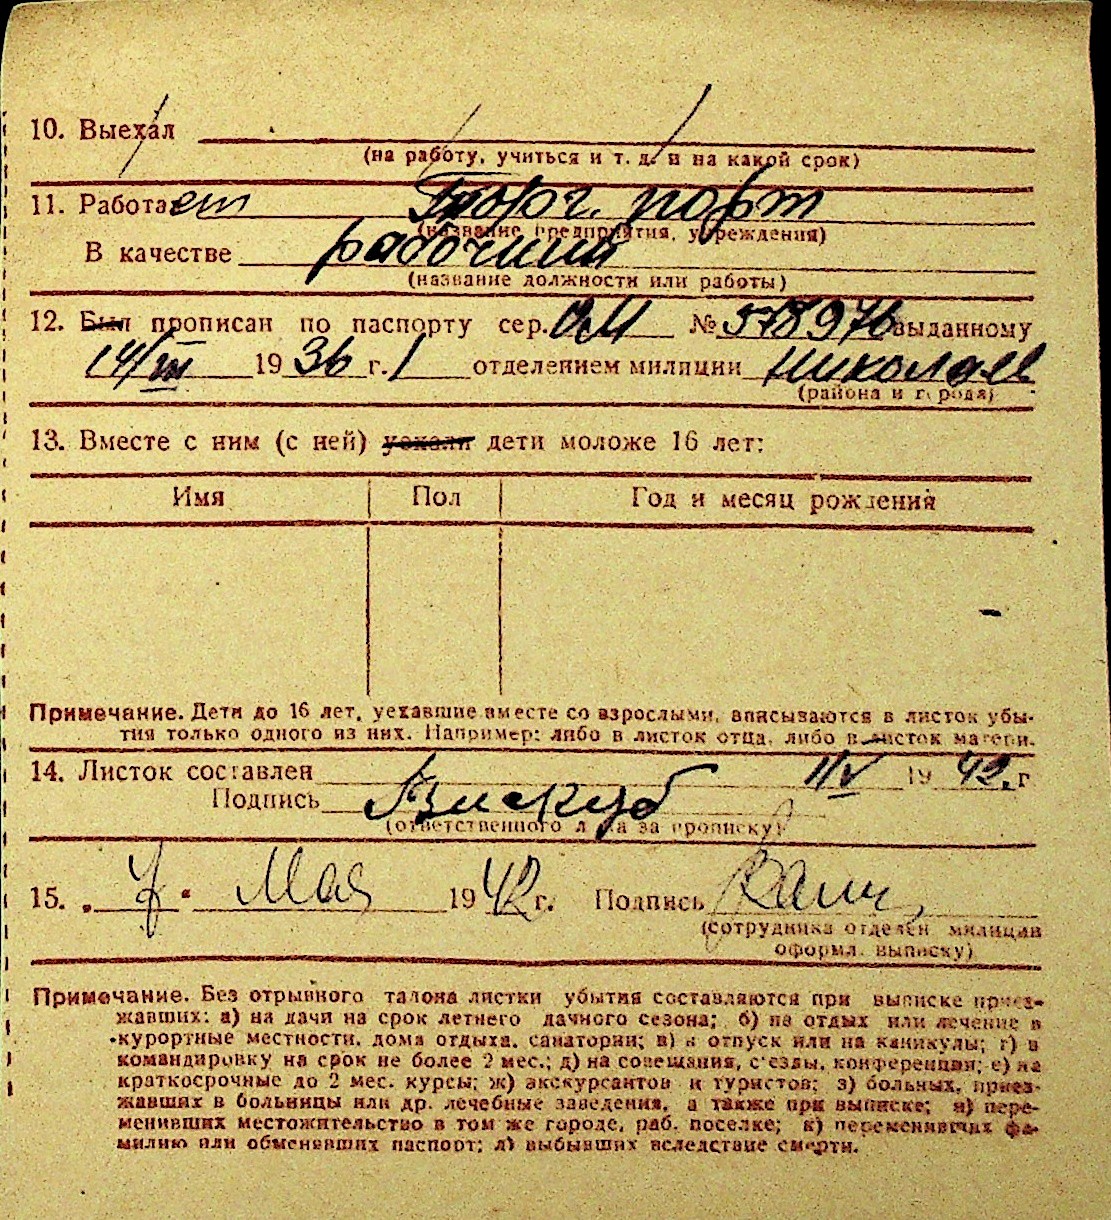 10. Выехал
(на работу, учиться и т. д. и на какой срок)
11. Работает Торг. порт
(название предприятия, учреждения)
В качестве рабочий
(название должности или работы)
12. Был прописан по паспорту сер. № 578976 выданному
14/III 1936 г. 1 отделением милиции Николаев
(района и города)
13. Вместе с ним (с ней) уехали дети моложе 16 лет:
Имя Пол Год и месяц рождения
Примечание. Дети до 16 лет, уехавшие вместе со взрослыми, вписываются в листок убы-
тия только одного из них. Например: либо в листок отца, либо в листок матери.
14. Листок составлен 1/V 1942. г
Подпись
(ответственного лица за прописку)
15. „7“ Мая 1942 г. Подпись
(сотрудника отделен милиции
оформл. выписку)
Примечание. Без отрывного талона листки убытия составляются при выписке приез-
жавших: а) на дачи на срок летнего дачного сезона; б) на отдых или лечение в
курортные местности, дома отдыха, санатории; в) в отпуск или на каникулы; г) в
командировку на срок не более 2 мес.; д) на совещания, съезды, конференции; е) на
краткосрочные до 2 мес. курсы; ж) экскурсантов и туристов; з) больных, приез-
жавших в больницы или др. лечебные заведения, а также при выписке; и) пере-
менивших местожительство в том же городе, раб. поселке; к) переменивших фа-
милию или обменявших паспорт; л) выбывших вследствие смерти.